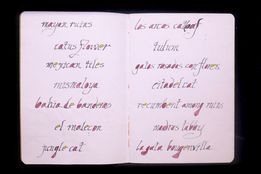 mayan ruins
cactus flower
mexican tiles
mismaloya
bahia de banderas
el malecon
jungle cat
los arcos
indian
gatos rosados con flores
citadel cat
recumbent among ruins
madras tabby
la gata bougenvilla